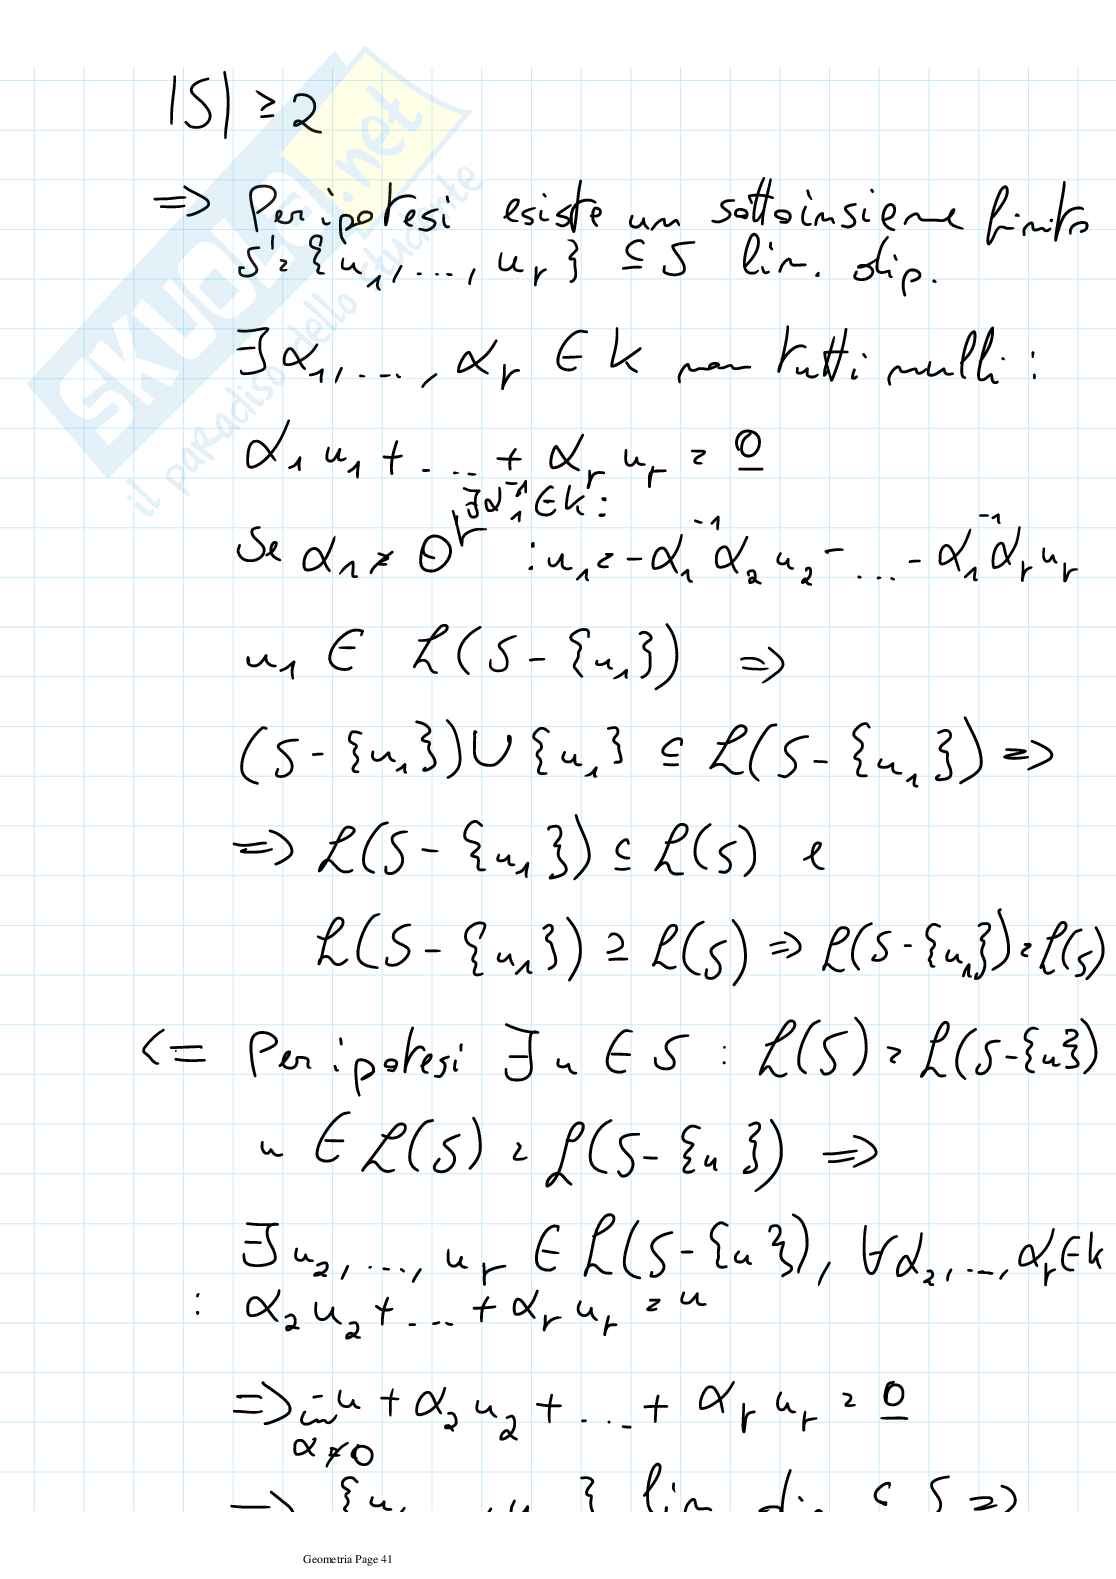 |S| ≥ 2
=> Per ipotesi esiste un sottoinsieme finito
S' = {u₁, ..., uᵣ} ⊆ S lin. dip.
∃ α₁, ..., αᵣ ∈ k non tutti nulli :
α₁ u₁ + ... + αᵣ uᵣ = 0
∃ α₁⁻¹ ∈ k :
Se α₁ ≠ 0 : u₁ = - α₁⁻¹ α₂ u₂ - ... - α₁⁻¹ αᵣ uᵣ
u₁ ∈ ℒ(S - {u₁}) =>
(S - {u₁}) ∪ {u₁} ⊆ ℒ(S - {u₁}) =>
=> ℒ(S - {u₁}) ⊆ ℒ(S) e
ℒ(S - {u₁}) ⊇ ℒ(S) => ℒ(S - {u₁}) = ℒ(S)
<= Per ipotesi ∃ u ∈ S : ℒ(S) = ℒ(S - {u})
u ∈ ℒ(S) = ℒ(S - {u}) =>
∃ u₂, ..., uᵣ ∈ ℒ(S - {u}), ∀ α₂, ..., αᵣ ∈ k
: α₂ u₂ + ... + αᵣ uᵣ = u
=> - u + α₂ u₂ + ... + αᵣ uᵣ = 0
α ≠ 0
SKUOLA.net
il paradiso dello studente
Geometria Page 41